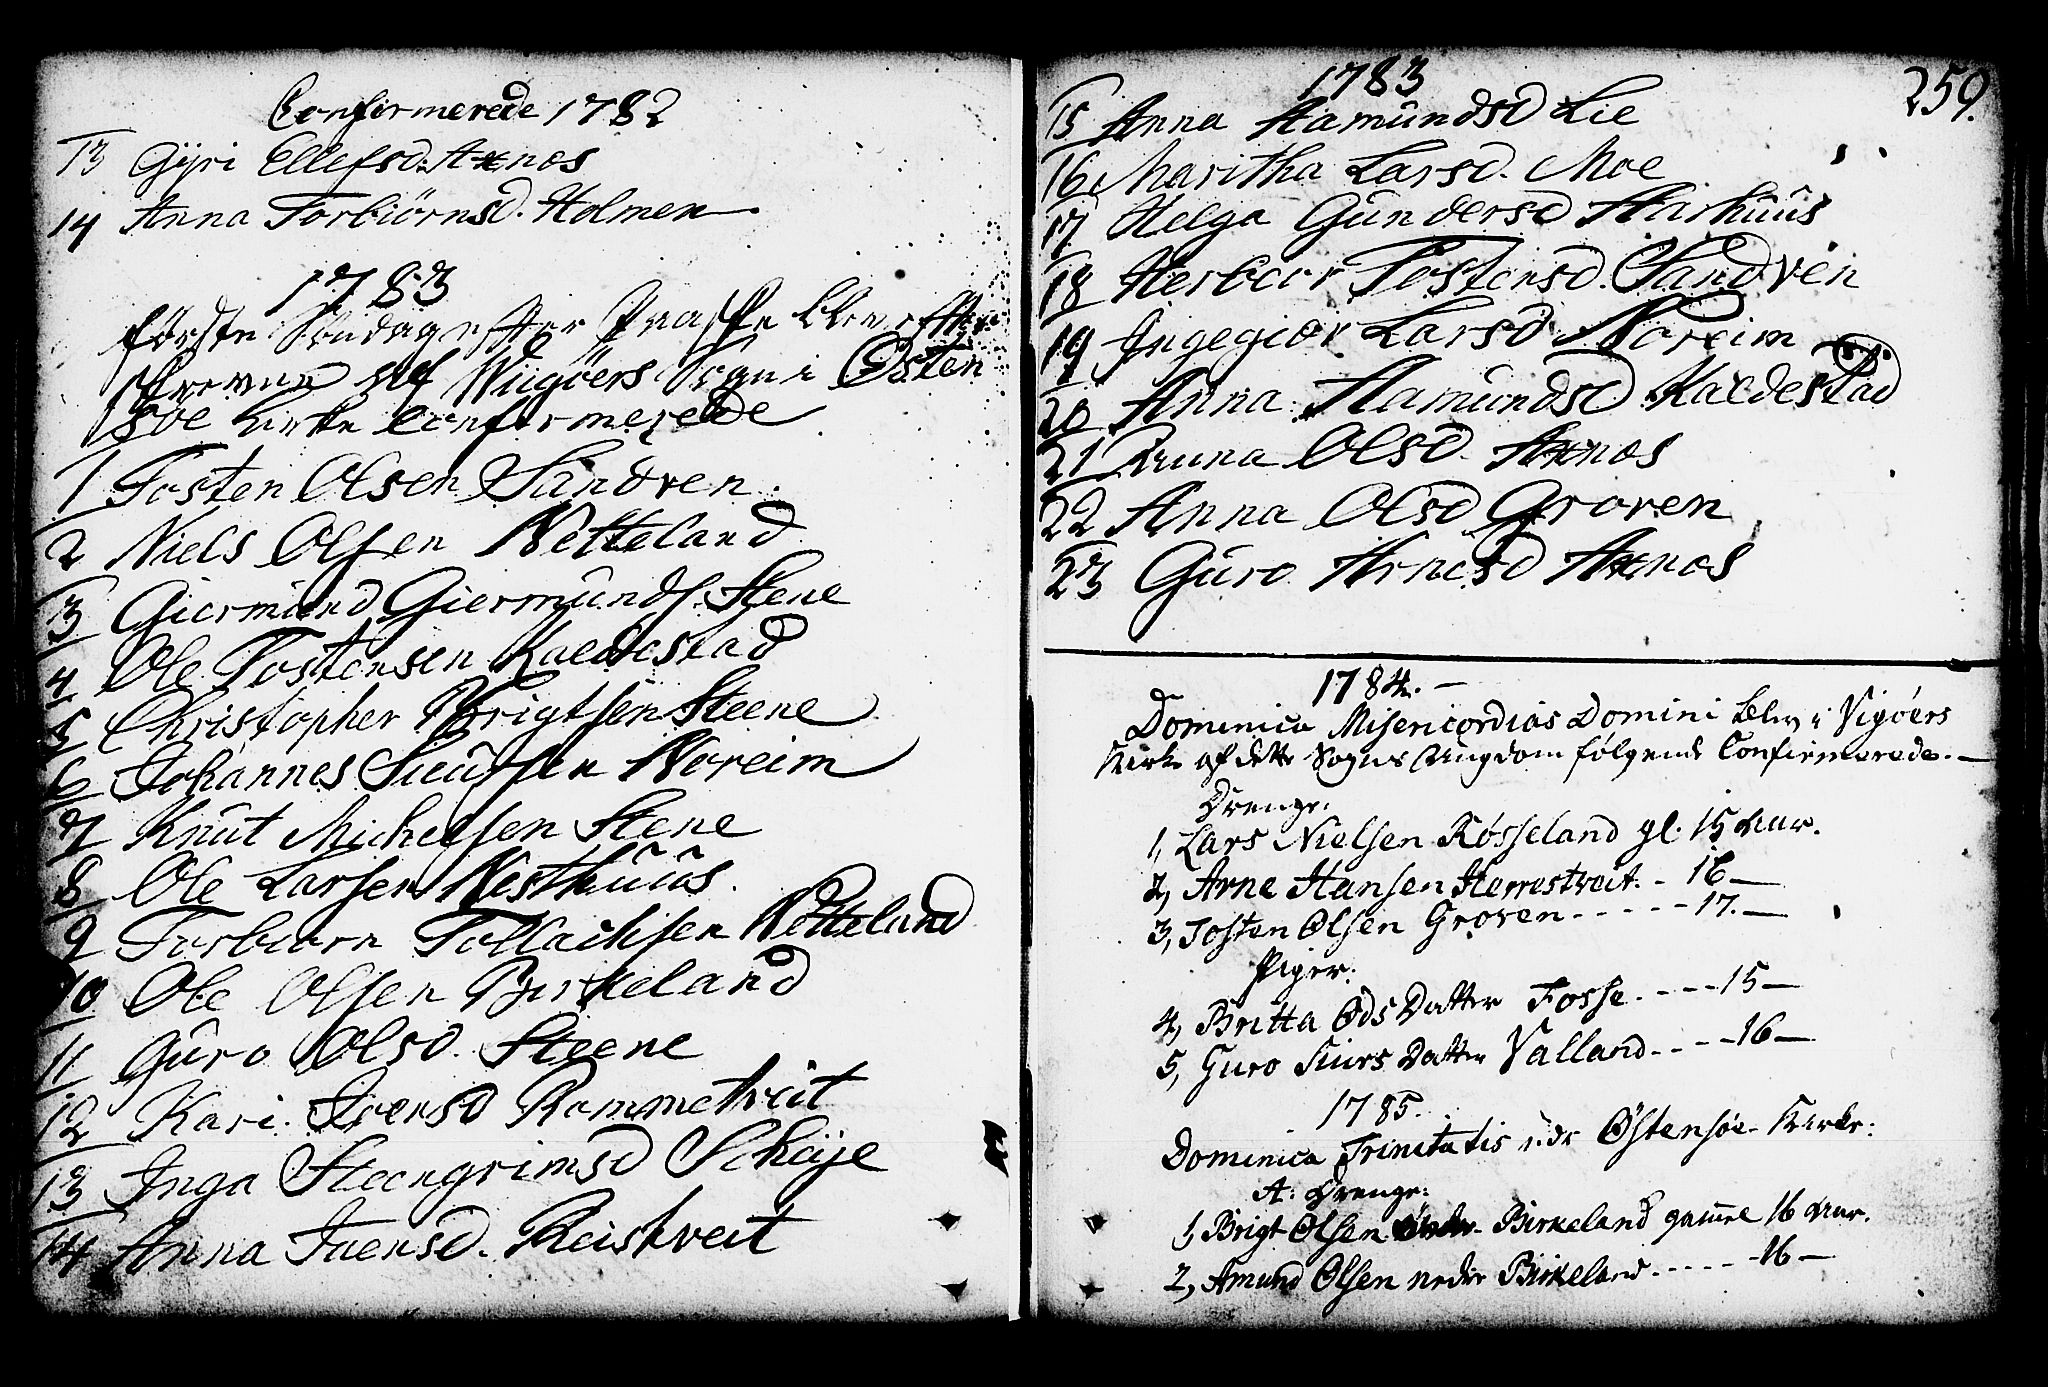 Confirmerede 1782
13 Gÿri Ellefsd. Axnæs
14 Anna Torbiörnsd. Holmen
1783
förste Söndag efter Paaske blev efter
skrevne af Wiigöers Sogn i Østen
söe Kirke Confirmerede
1 Tosten Olsen Sandven
2 Niels Olsen Netteland
3 Giermund Giermunds. Stene
4 Ole Tostensen Kaldestad
5 Christopher Brigtsen Steene
6 Johannes Siursen Noreim
7 Knut Michelsen Stene
8 Ole Larsen Nesthuus.
9 Torbiørn Tollachsen Netteland
10 Ole Olsen Birkeland
11 Guro Olsd. Steene
12 Kari Iversd Rommetveit
13 Inga Steengrimsd Scheije
14 Anna Iversd. Reistveit
259.
1783
15 Anna Aamundsd Lie
16 Maritha Larsd. Moe
17 Helga Gundersd Aarhuus
18 Herbior Tostensd. Sandven
19 Ingegiær Larsd Noreim
20 Anna Aamundsd Kaldestad
21 Runna Olsd. Axnæs
22 Anna Olsd Groven
23 Guro Arnesd Axnæs
1784. —
Dominica Misericordias Domini blev i Vigøers
Kirke af dette Sogns Ungdom følgende Confirmerede. —
Drenge:
1, Lars Nielsen Røsseland gl. 15 aar.
2, Arne Hansen Herrestveit. - 16 —
3, Tosten Olsen Groven - - - - - 17. —
Piger:
4, Britta Ods Datter Fosse. - - - - 15 —
5, Guro Siurs Datter Valland. - - - 16 —
1785.
Dominica Trinitatis udi Østensøe Kirke:
A: Drenge:
1, Brigt Olsen Birkeland gamle 16 aar.
2, Amund Olsen nedre Birkeland - - - - - 16 —